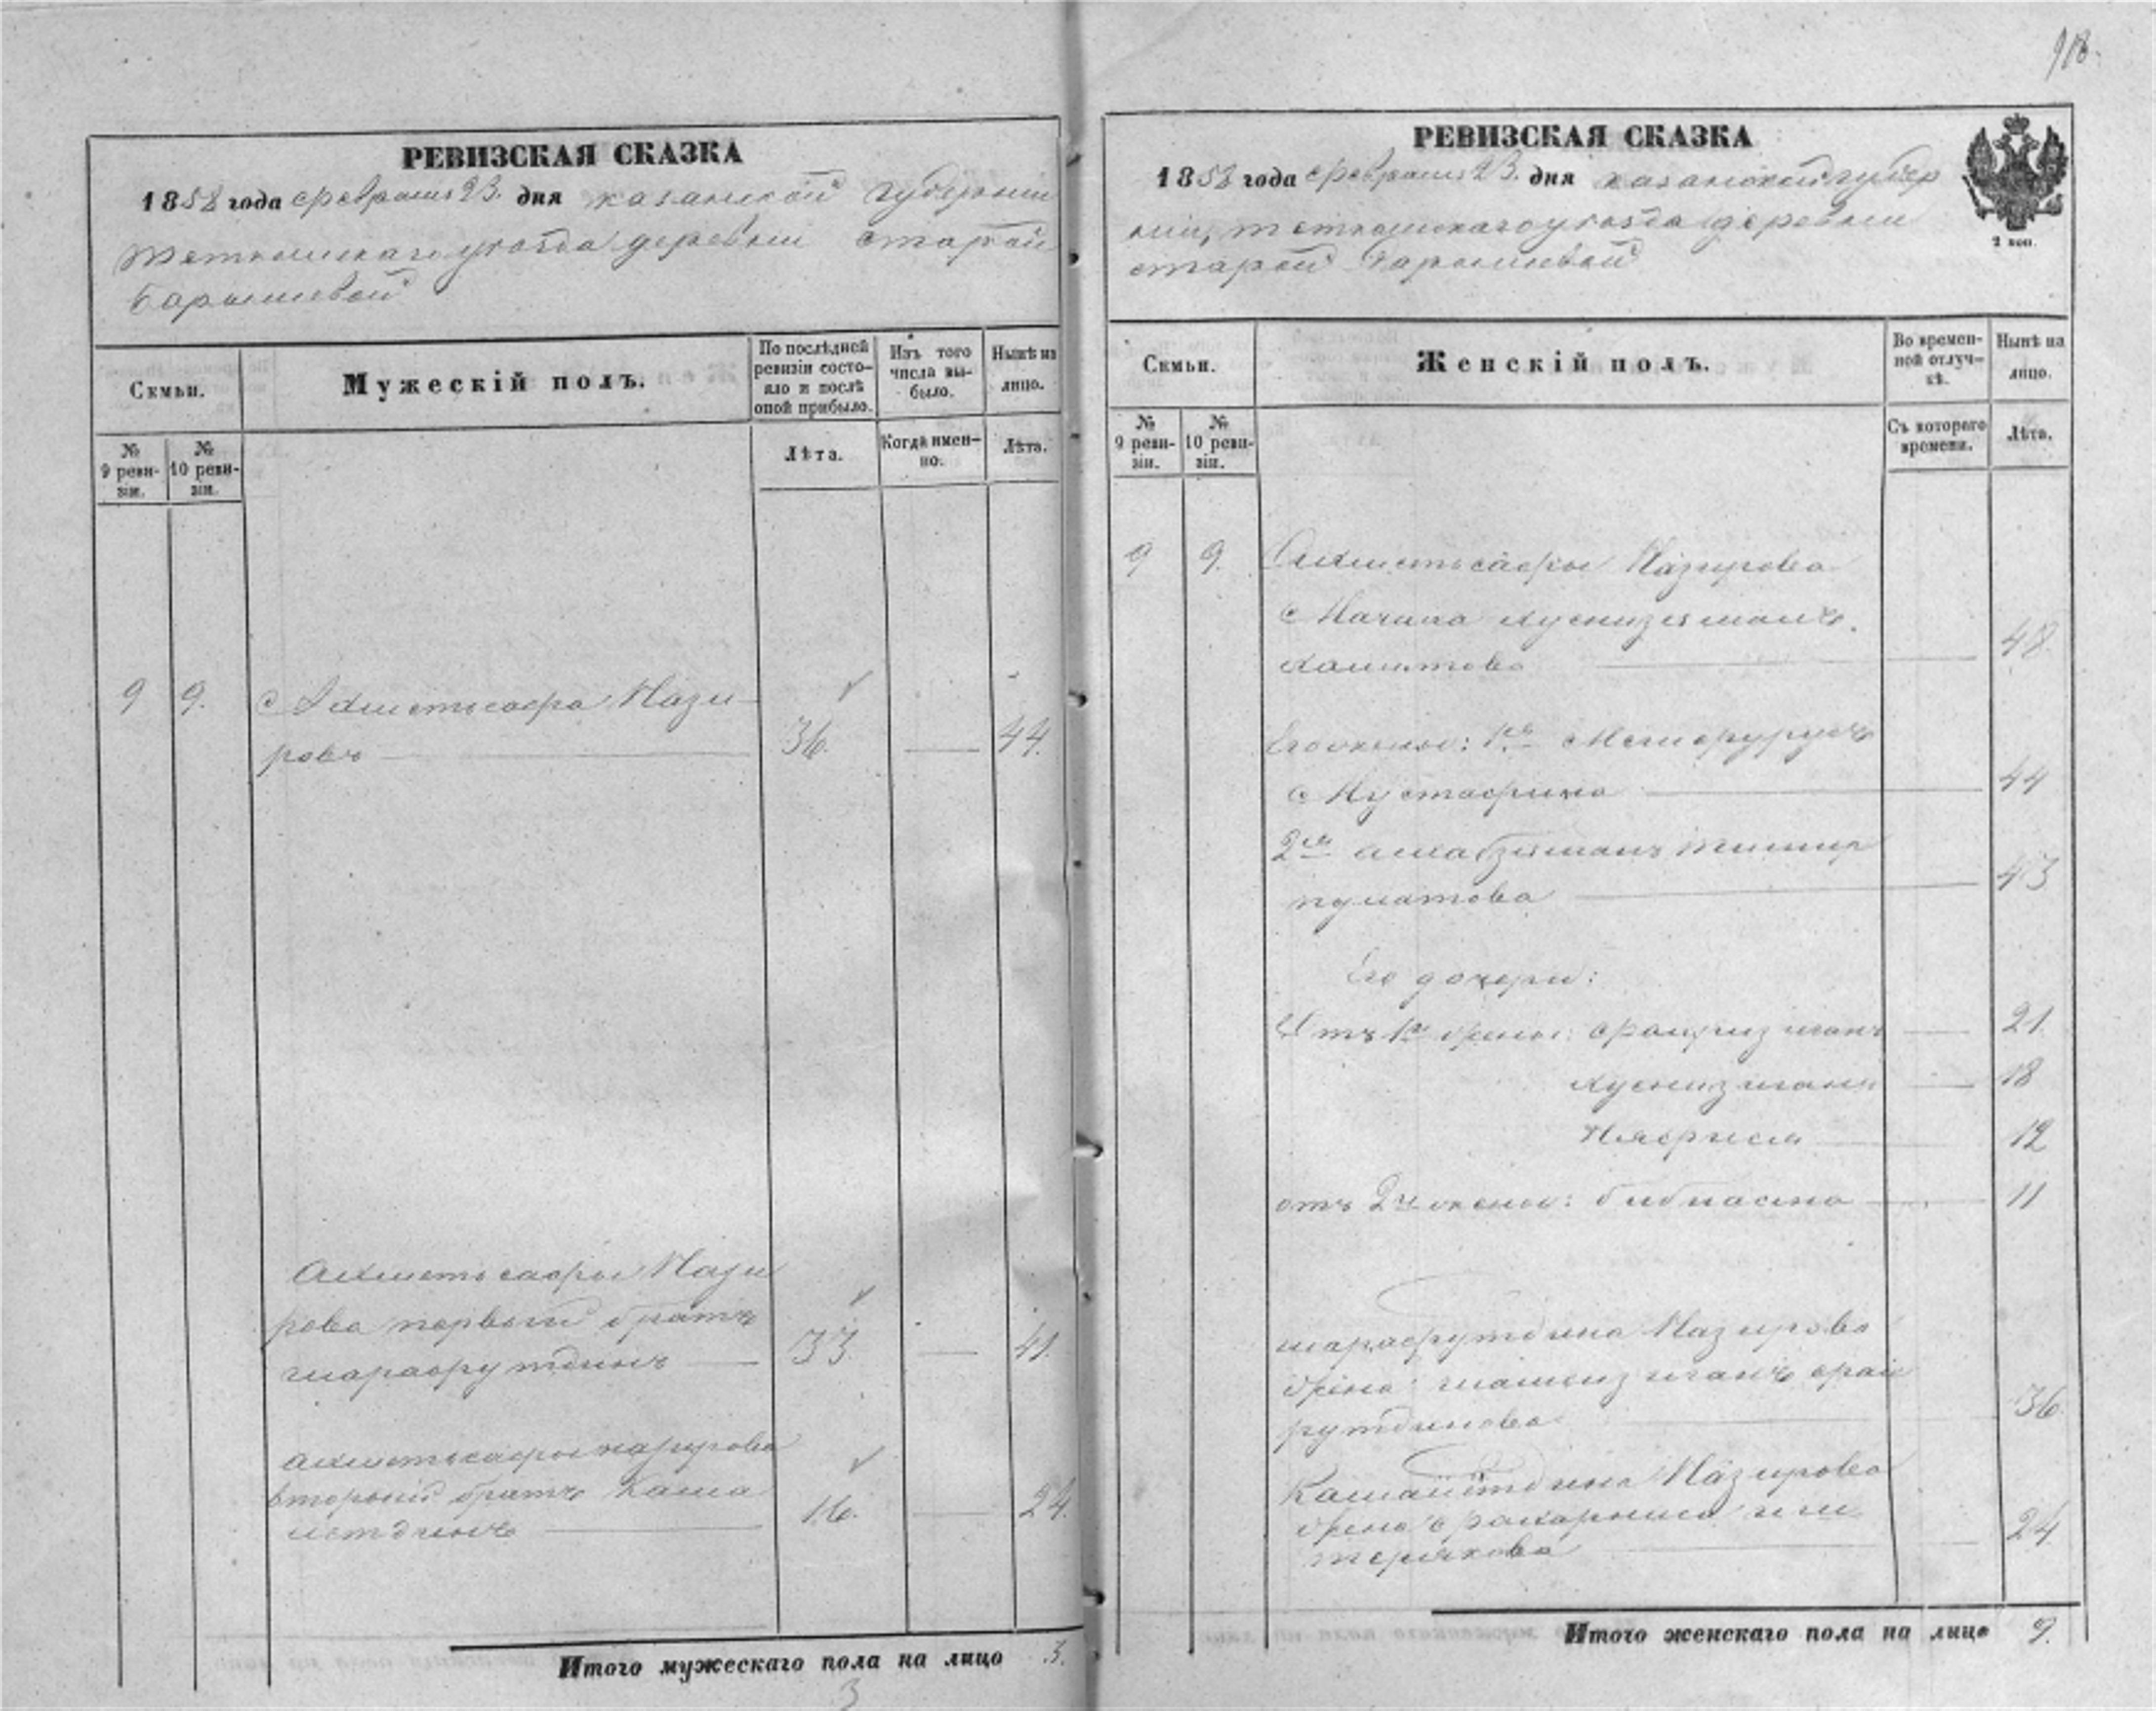 918.
РЕВИЗСКАЯ СКАЗКА
1858 года февраля 23. дня казанской губернии
тетюшскаго уезда деревни старой
барышевой
Семьи.
Мужескій полъ.
По послѣдней ревизіи состояло и послѣ оной прибыло.
Изъ того числа выбыло.
Нынѣ на лицо.
№ 9 ревизіи.
№ 10 ревизіи.
Лѣта.
Когда именно.
Лѣта.
9 9. Ахметьсафа Нази-
ровъ 36. 44.
Ахметьсафы Нази
рова первый братъ
шарафутдинъ 33. 41.
Ахметьсафы назирова
вторый братъ Кама
летдинъ 16. 24.
Итого мужескаго пола на лицо 3.
3
РЕВИЗСКАЯ СКАЗКА
1858 года февраля 23. дня казанской губер
ніи, тетюшскаго уезда деревни
старой барышевой
2 коп.
Семьи.
Женскій полъ.
Во временной отлучкѣ.
Нынѣ на лицо.
№ 9 ревизіи.
№ 10 ревизіи.
Съ котораго времени.
Лѣта.
9 9. Ахметьсафы Назирова
Мачиха хуснизяманъ
хамитова 48.
Его жены: 1ая
Мустафина 44
2ая тимир
пулатова 43
Его дочери:
Отъ 1й жены: 21.
хуснизяганъ 18
Няфися 12
отъ 2й жены: бибиасма 11
шарафутдина Назирова
жена: шамсизиганъ фай
рутдинова 36.
Камалетдина Назирова
жена
24.
Итого женскаго пола на лицо 9.